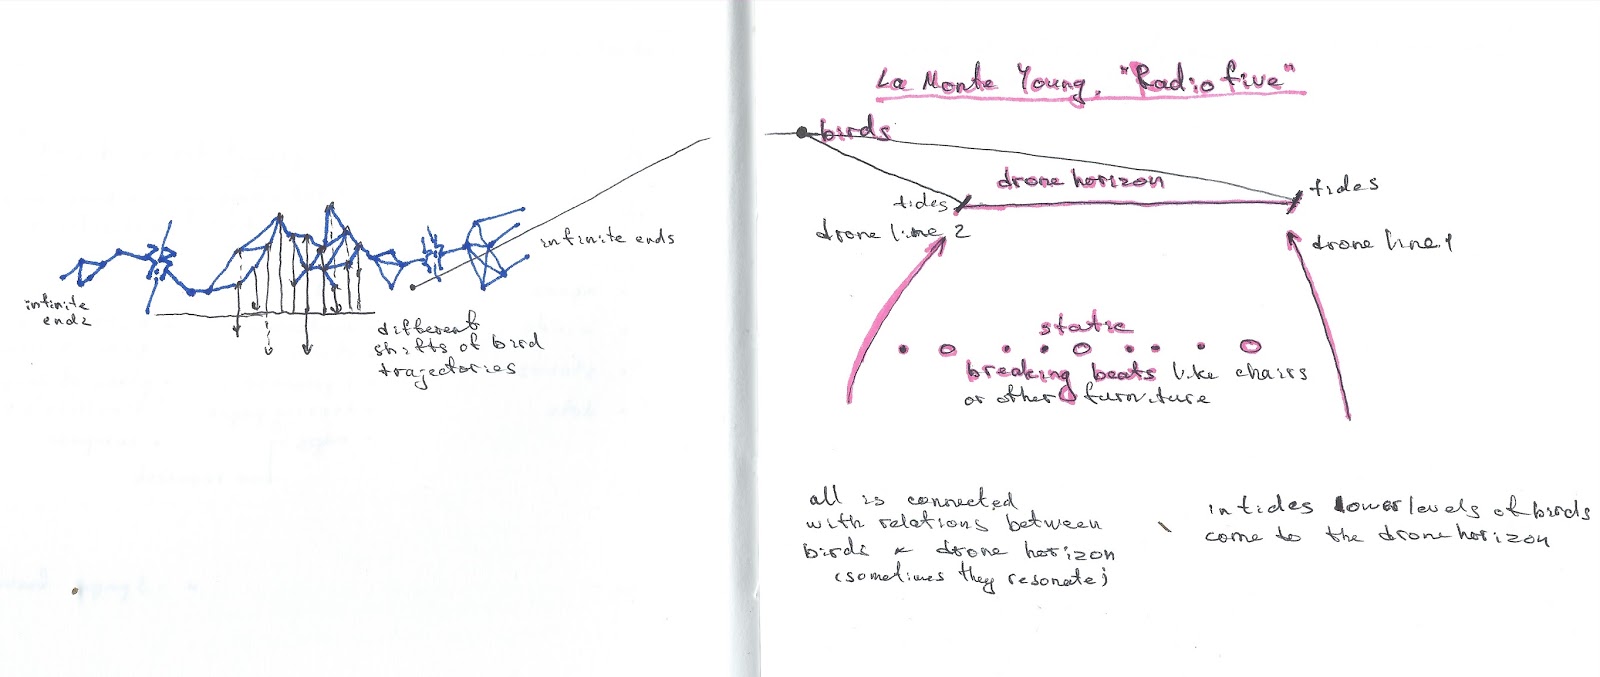 infinite
ends
infinite ends
different
shifts of bird
trajectories
La Monte Young, "Radio five"
birds
drone horizon
tides
tides
drone line 2
drone line 1
static
breaking beats like chairs
or other furniture
all is connected
with relations between
birds & drone horizon
(sometimes they resonate)
in tides lower levels of birds
come to the drone horizon